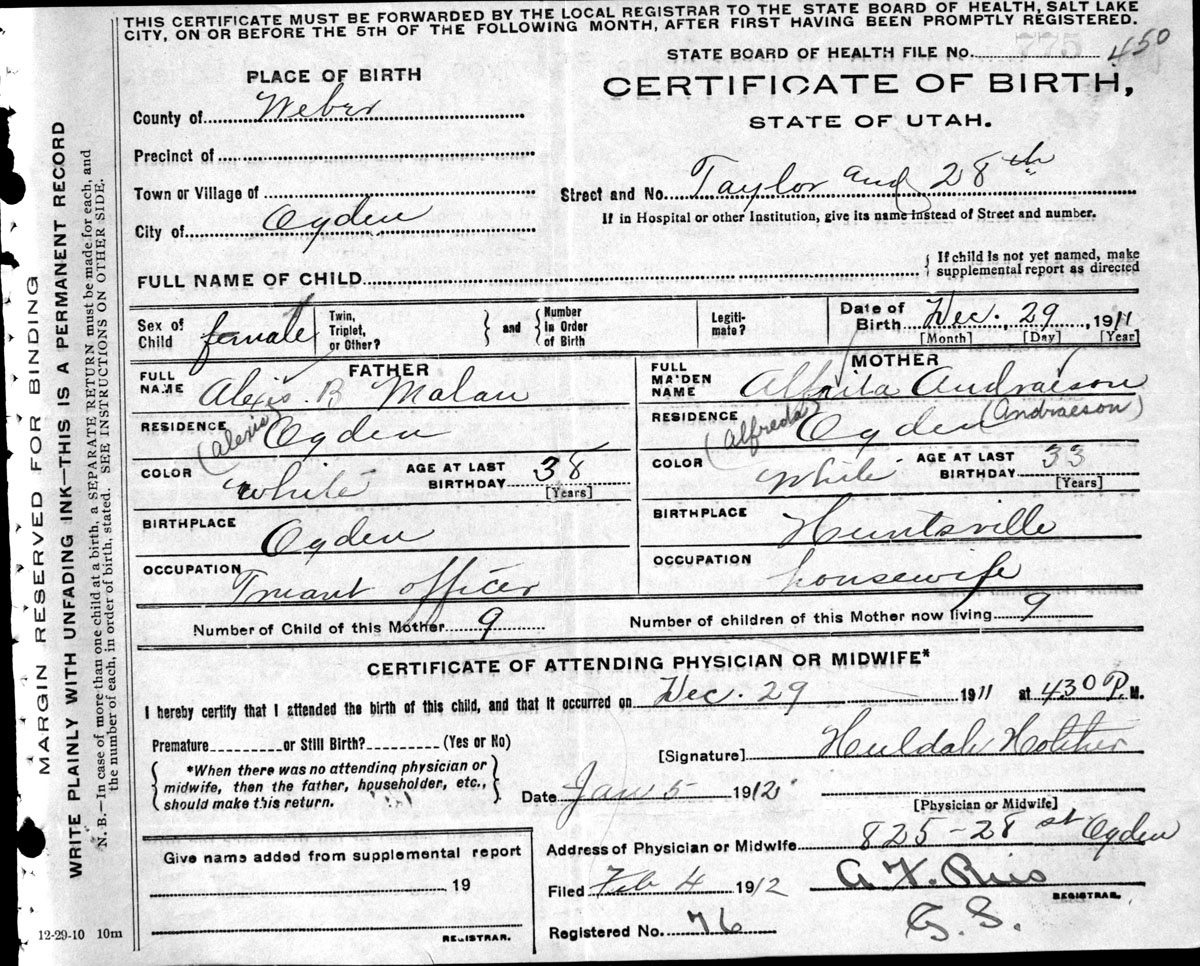 THIS CERTIFICATE MUST BE FORWARDED BY THE LOCAL REGISTRAR TO THE STATE BOARD OF HEALTH, SALT LAKE
CITY, ON OR BEFORE THE 5TH OF THE FOLLOWING MONTH, AFTER FIRST HAVING BEEN PROMPTLY REGISTERED.
STATE BOARD OF HEALTH FILE No. 450
PLACE OF BIRTH
CERTIFICATE OF BIRTH,
STATE OF UTAH.
County of Weber
Precinct of
Town or Village of
Street and No. Taylor and 28th
If in Hospital or other Institution, give its name instead of Street and number.
City of Ogden
FULL NAME OF CHILD
{ If child is not yet named, make
supplemental report as directed
Sex of
Child female
Twin,
Triplet,
or Other? } and { Number
in Order
of Birth
Legiti-
mate?
Date of
Birth Dec. , 29 , 1911
[Month] [Day] [Year]
FATHER
FULL
NAME Alexis B Malan
RESIDENCE Ogden
(Alexis)
COLOR White
AGE AT LAST
BIRTHDAY 38
[Years]
BIRTHPLACE Ogden
OCCUPATION Truant officer
MOTHER
FULL
MAIDEN
NAME Andraeson
RESIDENCE Ogden
(Alfreda) (Andraeson)
COLOR White
AGE AT LAST
BIRTHDAY 33
[Years]
BIRTHPLACE Huntsville
OCCUPATION housewife
Number of Child of this Mother 9
Number of children of this Mother now living 9
CERTIFICATE OF ATTENDING PHYSICIAN OR MIDWIFE*
I hereby certify that I attended the birth of this child, and that it occurred on Dec. 29 1911 at 430 P. M.
Premature or Still Birth? (Yes or No)
[Signature] Huldah
{ *When there was no attending physician or
midwife, then the father, householder, etc.,
should make this return. }
Date Jan 5 1912
[Physician or Midwife]
Address of Physician or Midwife 825-28 st Ogden
Give name added from supplemental report
19
REGISTRAR.
Filed Feb 4 1912
REGISTRAR.
Registered No. 76
G. S.
12-29-10 10m
MARGIN RESERVED FOR BINDING
WRITE PLAINLY WITH UNFADING INK—THIS IS A PERMANENT RECORD
N. B.—In case of more than one child at a birth, a SEPARATE RETURN must be made for each, and
the number of each, in order of birth, stated. SEE INSTRUCTIONS ON OTHER SIDE.